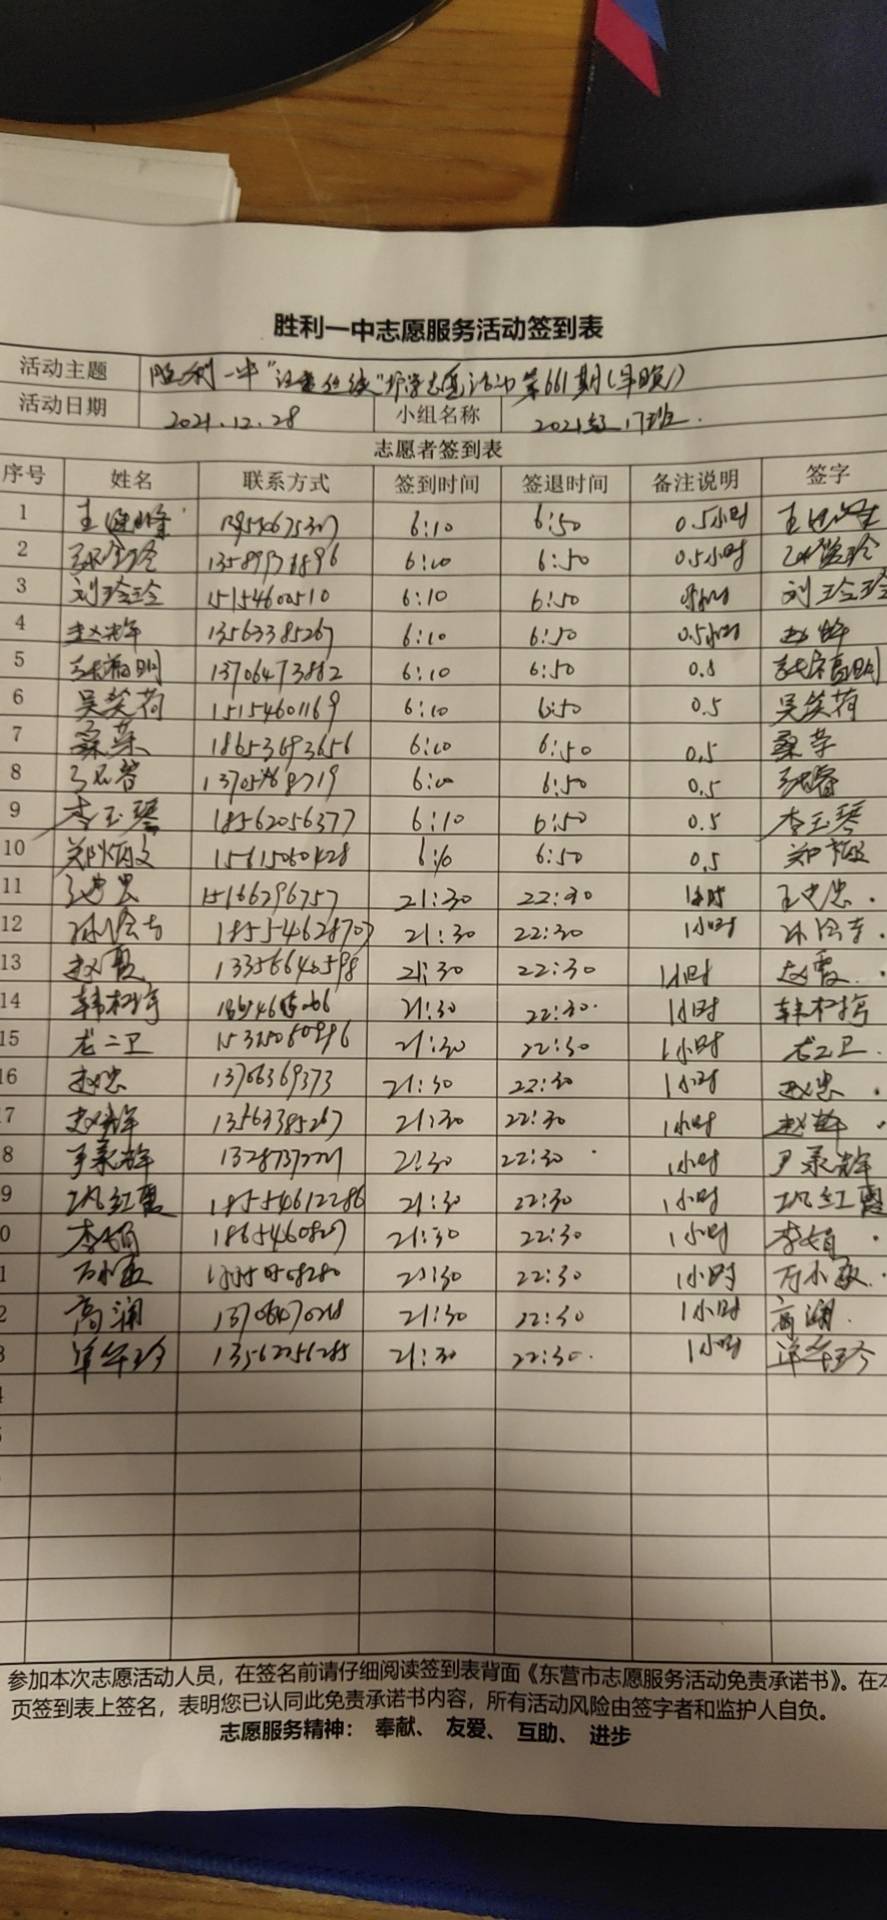 胜利一中志愿服务活动签到表
活动主题 胜利一中" "护学志愿活动第661期(早晚)
活动日期 2021.12.28 小组名称 2021级17班.
志愿者签到表
序号 姓名 联系方式 签到时间 签退时间 备注说明 签字
1 6:10 6:50 0.5小时
2 6:10 6:50 0.5小时
3 刘玲玲 15154600510 6:10 6:50 刘玲玲
4 赵辉 13563385267 6:10 6:50 0.5小时 赵辉
5 张福明 13706473882 6:10 6:50 0.5 张福明
6 吴笑荷 15154601169 6:10 6:50 0.5 吴笑荷
7 桑荣 18653693656 6:10 6:50 0.5 桑荣
8 6:10 6:50 0.5
9 李玉琴 18562056377 6:10 6:50 0.5 李玉琴
10 郑炳文 15615060428 6:10 6:50 0.5
11 15166796757 21:30 22:30 1小时
12 18554628707 21:30 22:30 1小时
13 赵霞 13356640598 21:30 22:30 1小时 赵霞.
14 21:30 22:30. 1小时
15 尤二卫 21:30 22:30 1小时 尤二卫.
16 赵忠 13706369373 21:30 22:30 1小时 赵忠.
7 赵辉 13563385267 21:30 22:30 1小时 赵辉.
8 尹承辉 21:30 22:30 1小时 尹承辉
9 巩红霞 18554612286 21:30 22:30 1小时 巩红霞
0 李娟 1865460827 21:30 22:30 1小时 李娟.
1 万小敏 21:30 22:30 1小时 万小敏.
2 高润 21:30 22:30 1小时 高润.
3 单华玲 13562256285 21:30 22:30. 1小时 单华玲
参加本次志愿活动人员，在签名前请仔细阅读签到表背面《东营市志愿服务活动免责承诺书》。在本
页签到表上签名，表明您已认同此免责承诺书内容，所有活动风险由签字者和监护人自负。
志愿服务精神： 奉献、 友爱、 互助、 进步